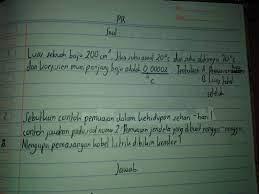 PR
Soal
1 Luas sebuah baja 200 cm². Jika suhu awal 20°C dan suhu akhirnya 70°C
dan koefisien muai panjang baja adalah 0,00002 Tentukan A. Pemuaian
°C B. Luas total
setelah
2. Sebutkan contoh pemuaian dalam kehidupan sehari-hari!
contoh jawaban pada soal nomor 2. Pemasangan jendela yang dibuat renggang-renggang
3. Mengapa pemasangan kabel listrik dibikin kendor!
Jawab